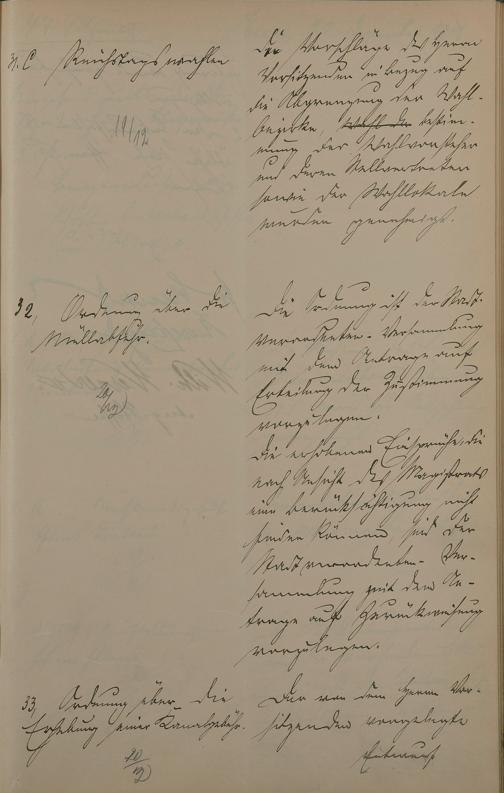 31. C Reichstagswahlen
11/12
Die Vorschläge des Herrn
Vorsitzenden in Bezug auf
die Abgrenzung der Wahl-
bezirke, Wahl der bestim-
mung der Wahlvorsteher
und deren Stellvertreter
sowie der Wahllokale
wurden genehmigt.
32, Ordnung über die
Müllabfuhr.
Die Ordnung ist der Stadt-
verordneten-Versammlung
mit dem Antrage auf
Erteilung der Zustimmung
vorzulegen.
Die erhobenen Einsprüche, die
nach Ansicht des Magistrats
eine Berücksichtigung nicht
finden können, sind der
Stadtverordneten-Ver-
sammlung mit dem An-
trage auf Zurückweisung
vorzulegen.
33, Ordnung über die
Erhebung einer Kanalgebühr.
Der von dem Herrn Vor-
sitzenden vorgelegte
Entwurf